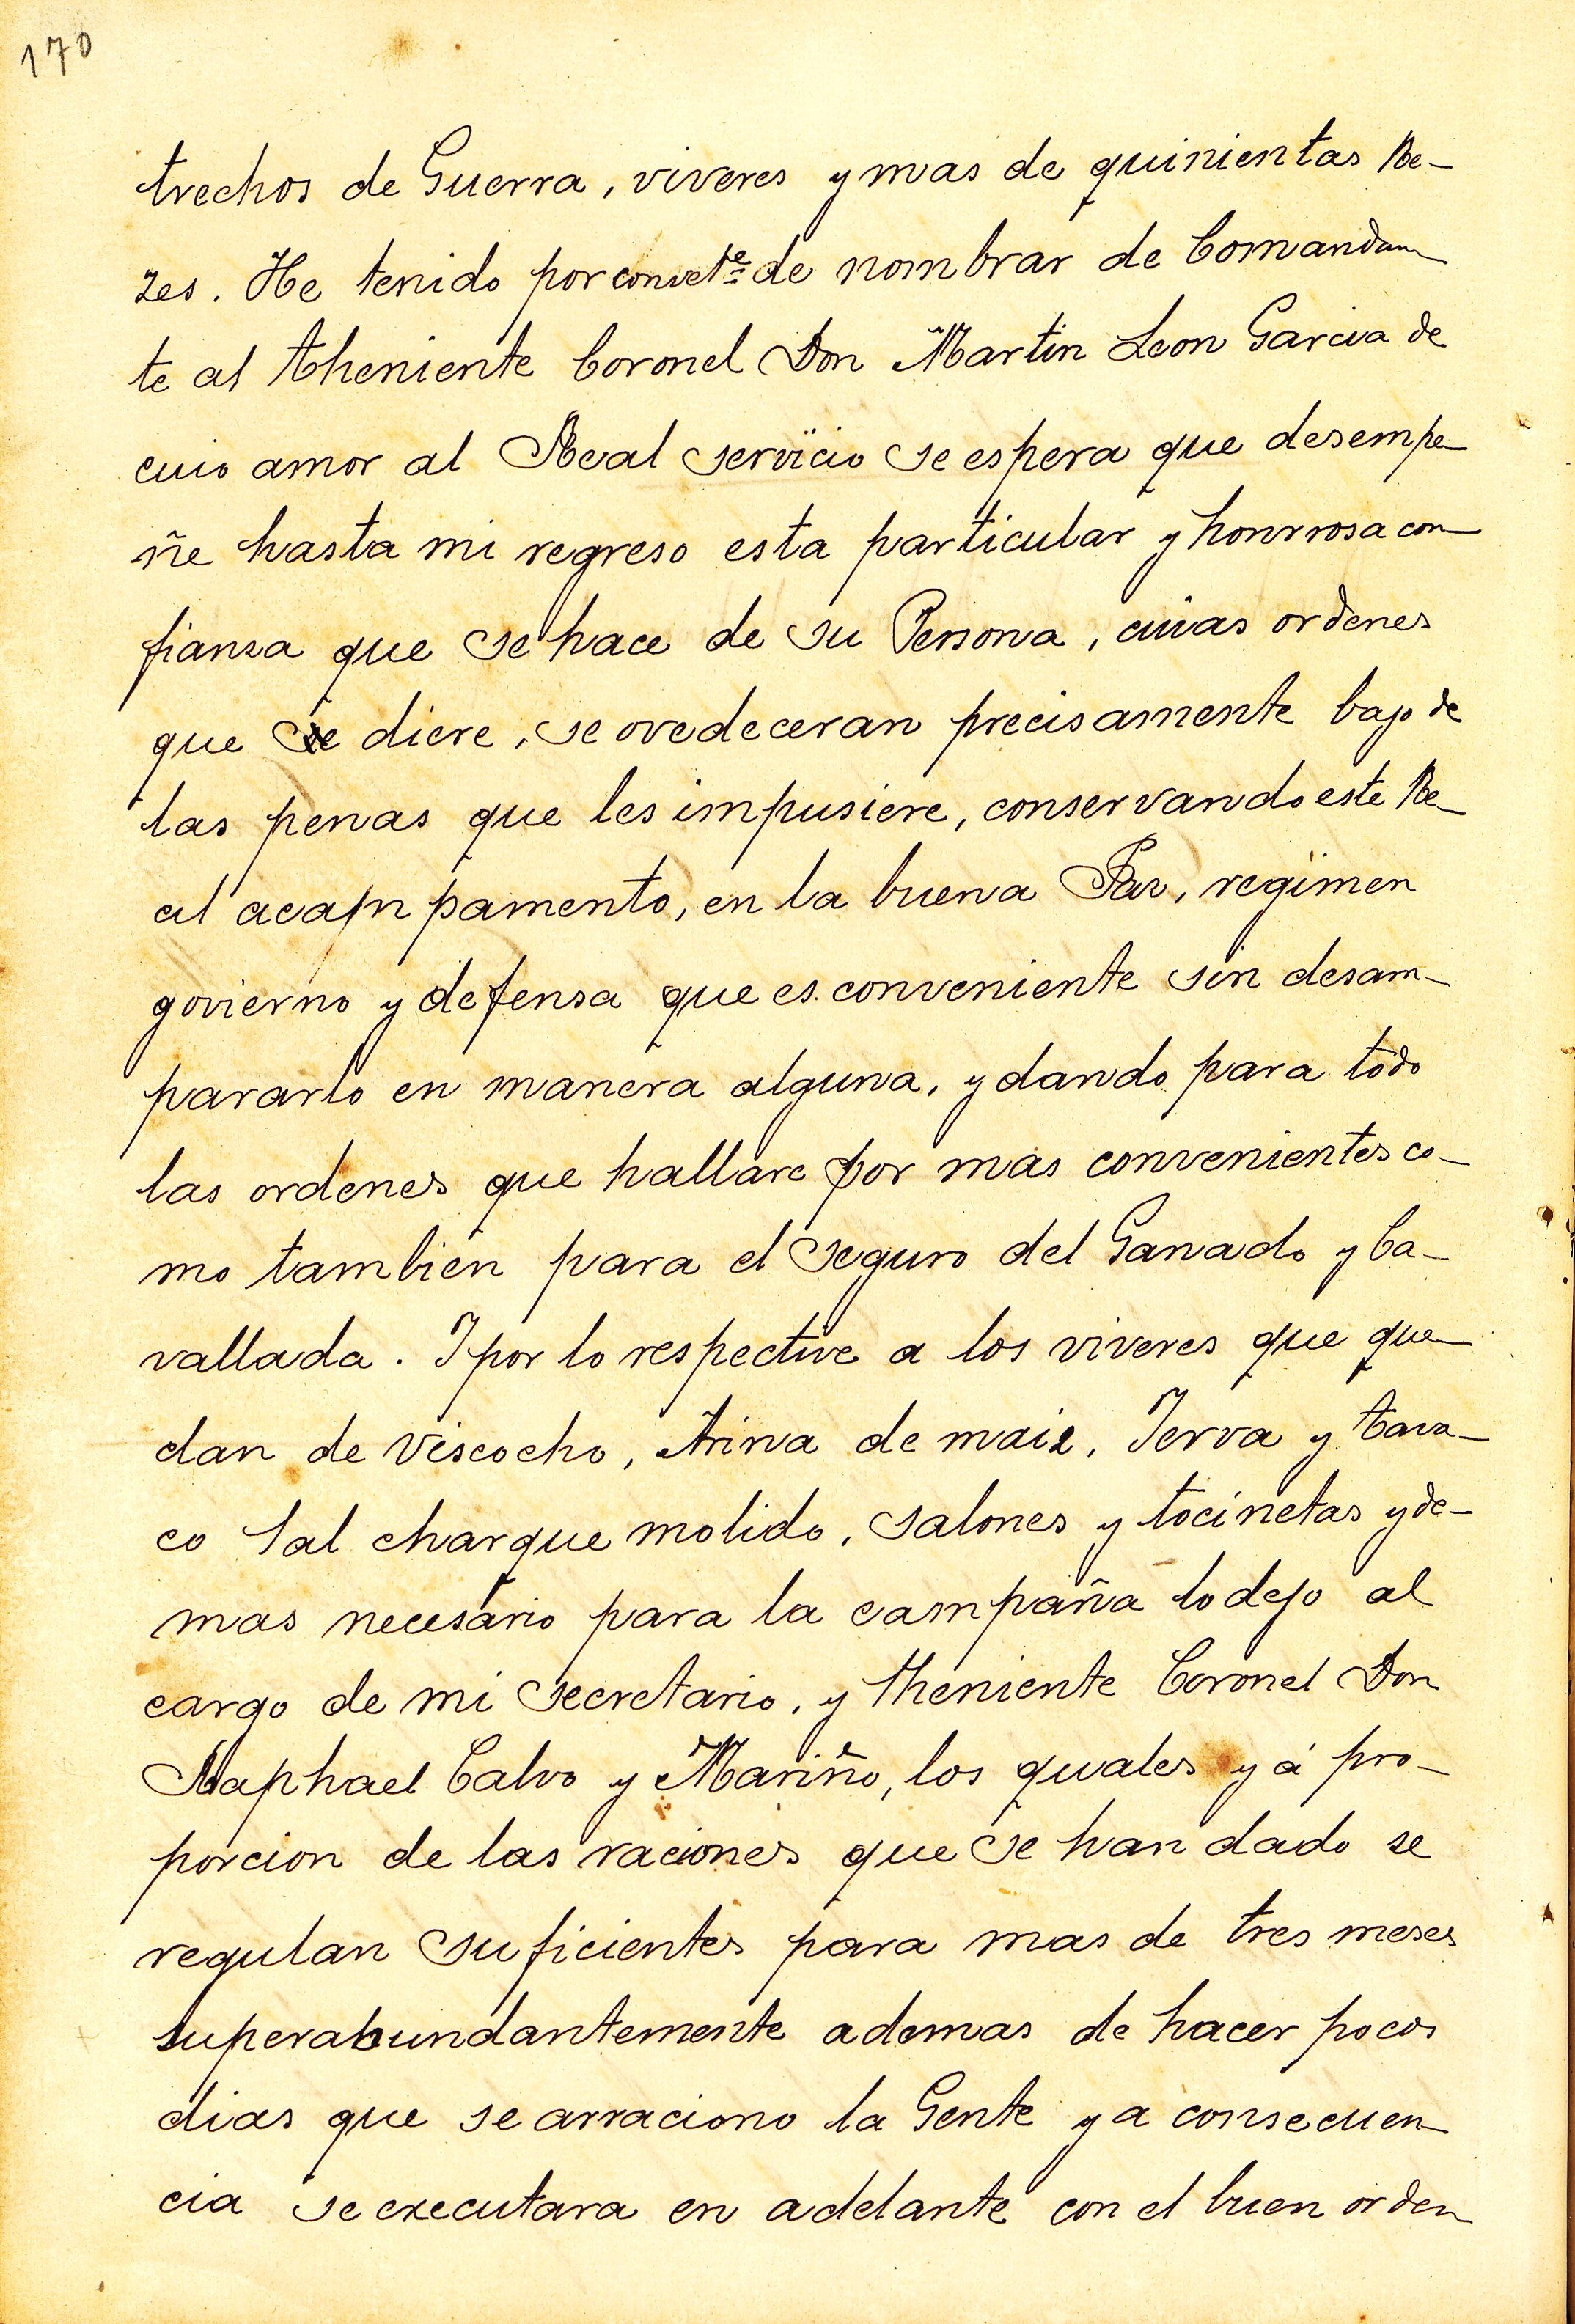 170
trechos de Guerra, viveres y mas de quinientas Re-
zes. He tenido por convete de nombrar de Comandan-
te al theniente Coronel Don Martin Leon Garcia de
cuio amor al Real servicio se espera que desempe-
ñe hasta mi regreso esta particular y honrrosa con-
fianza que se hace de su Persona, cuias ordenes
que se diere, se ovedeceran precisamente bajo de
las penas que les impusiere, conservando este Re-
al acampamento, en la buena Paz, regimen
govierno y defensa que es conveniente sin desam-
pararlo en manera alguna, y dando para todo
las ordenes que hallare por mas convenientes co-
mo tambien para el seguro del Ganado y Ca-
vallada. I por lo respective a los viveres que que-
dan de viscocho, Arina de maiz, Ierva y tava-
co Sal charque molido, salones y tocinetas y de-
mas necesario para la campaña lo dejo al
cargo de mi secretario, y theniente Coronel Don
Raphael Calvo y Mariño, los quales y á pro-
porcion de las raciones que se han dado se
regulan suficientes para mas de tres meses
superabundantemente ademas de hacer pocos
dias que se arraciono la Gente y a consecuen-
cia se executara en adelante con el buen orden